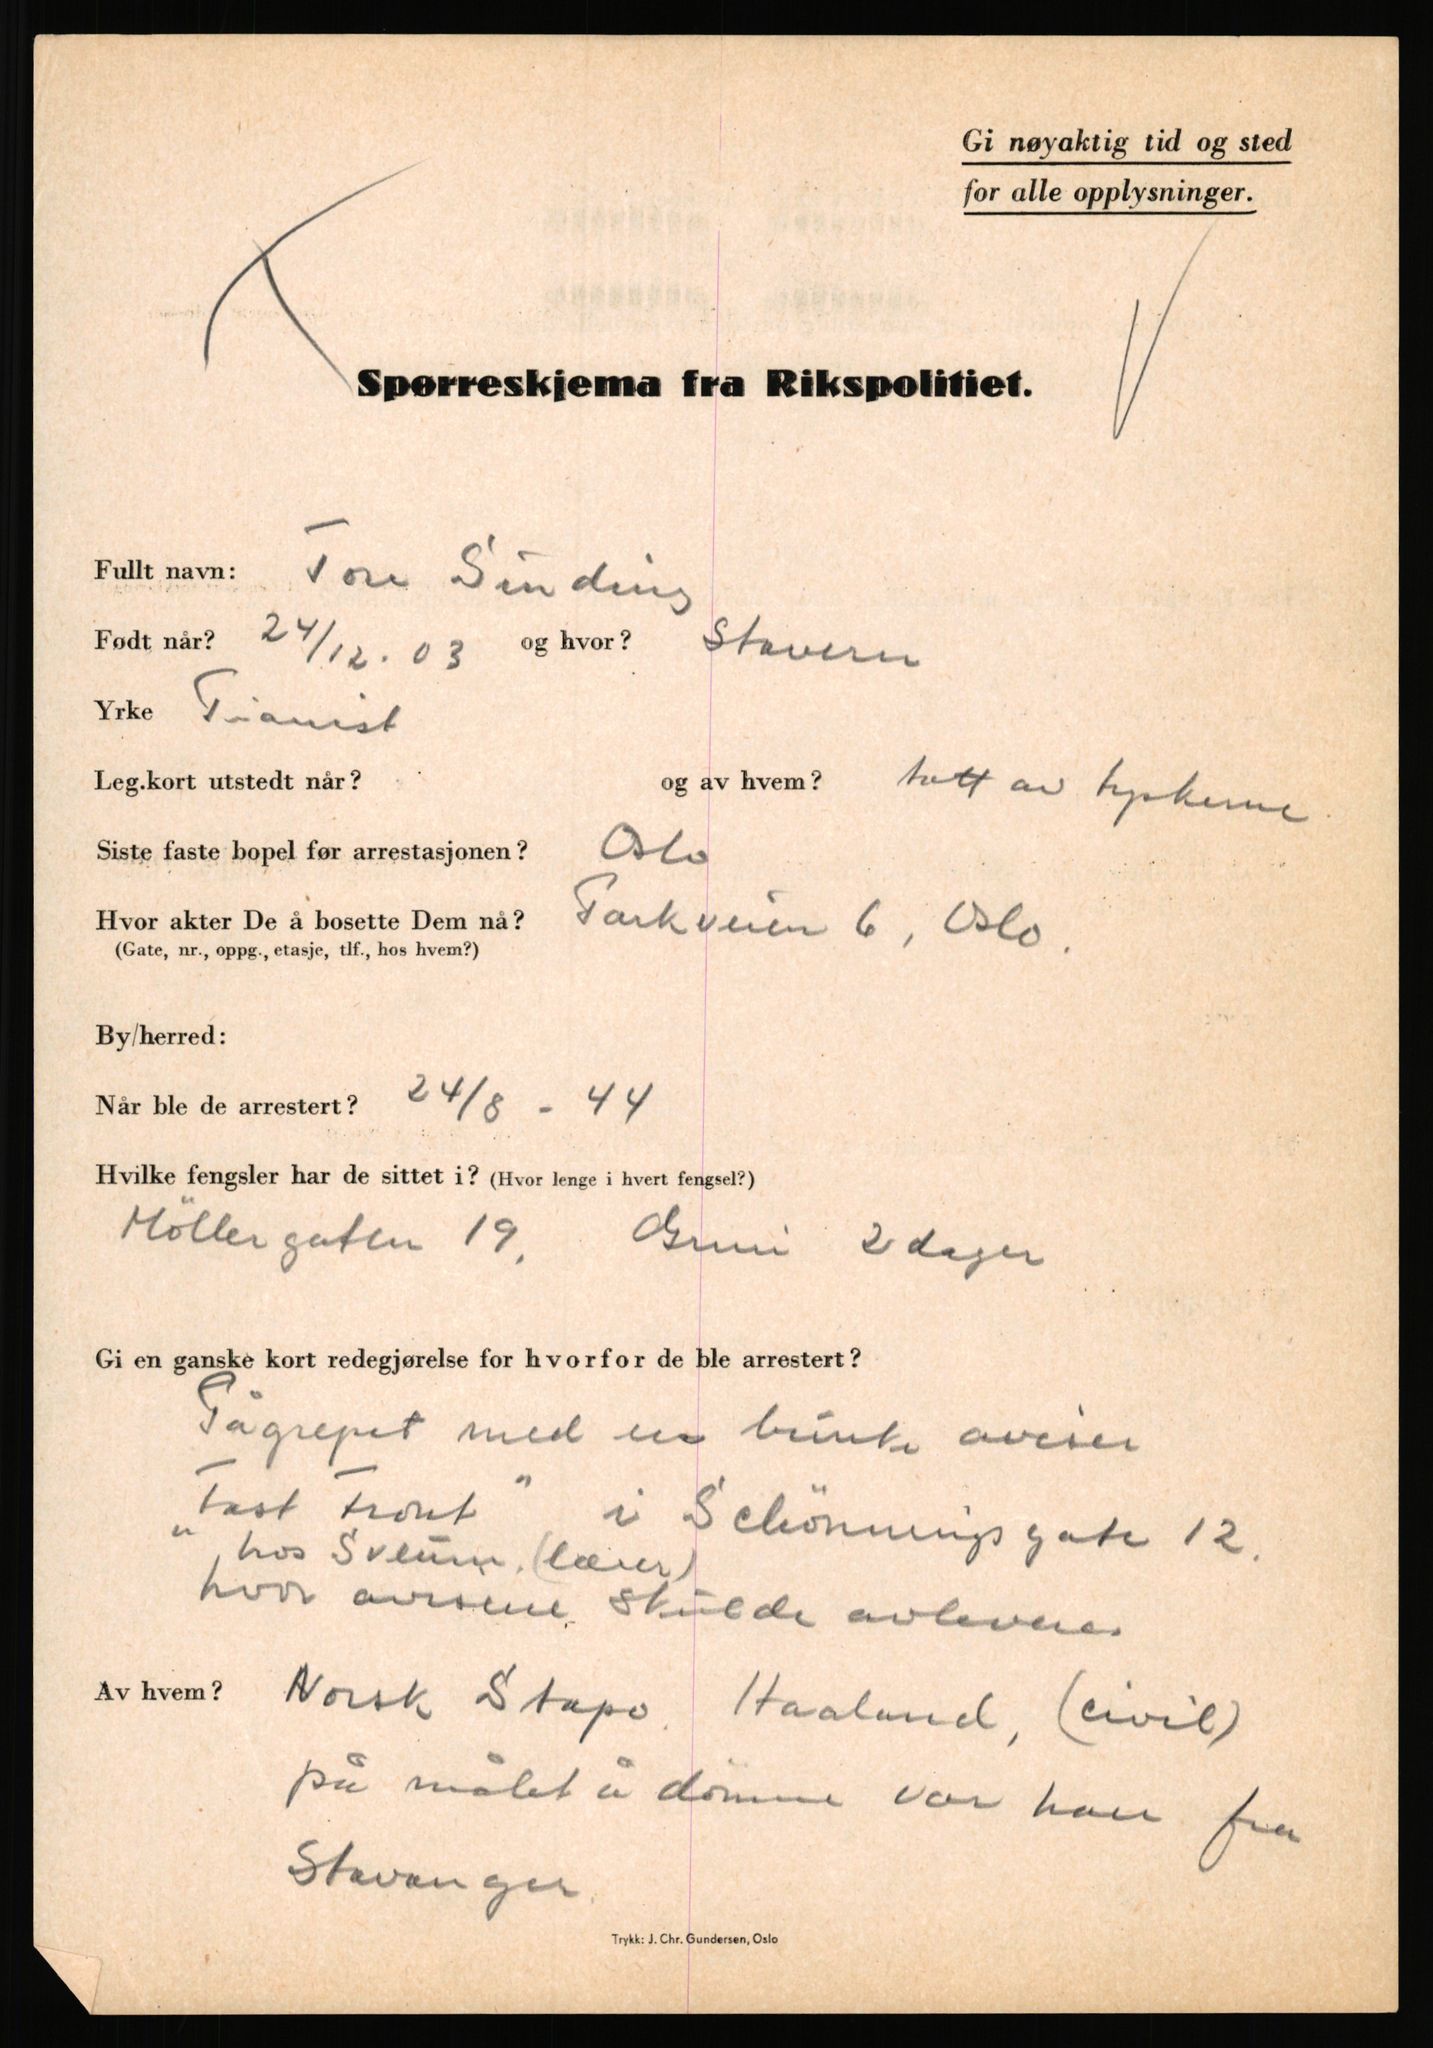 Gi nøyaktig tid og sted
for alle opplysninger.
Spørreskjema fra Rikspolitiet.
Fullt navn: Tore Sinding
Født når? 24/12. 03 og hvor? Stavern
Yrke Pianist
Leg.kort utstedt når? og av hvem? tatt av tyskerne
Siste faste bopel før arrestasjonen? Oslo
Hvor akter De å bosette Dem nå? Parkveien 6, Oslo.
(Gate, nr., oppg., etasje, tlf., hos hvem?)
By/herred:
Når ble de arrestert? 24/8 - 44
Hvilke fengsler har de sittet i? (Hvor lenge i hvert fengsel?)
Möllergaten 19. Grini 2 dager
Gi en ganske kort redegjørelse for hvorfor de ble arrestert?
Pågrepet med en bunke aviser
"Fast Front" i Schönningsgate 12.
hos Sveum. (lærer)
hvor avisene skulde avleveres
Av hvem? Norsk Stapo. Haaland, (civil)
på målet å dömme var han fra
Stavanger.
Trykk: J. Chr. Gundersen, Oslo